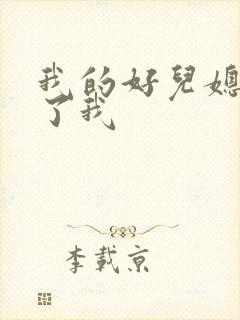 我的好兒媳
了我
李載京